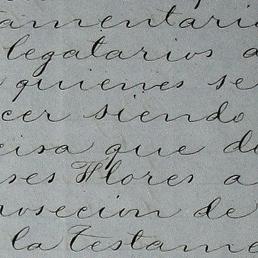 amentari
legatarios a
quienes se
cer siendo
cisa que de
ses Flores a
nosecion de
la Testame